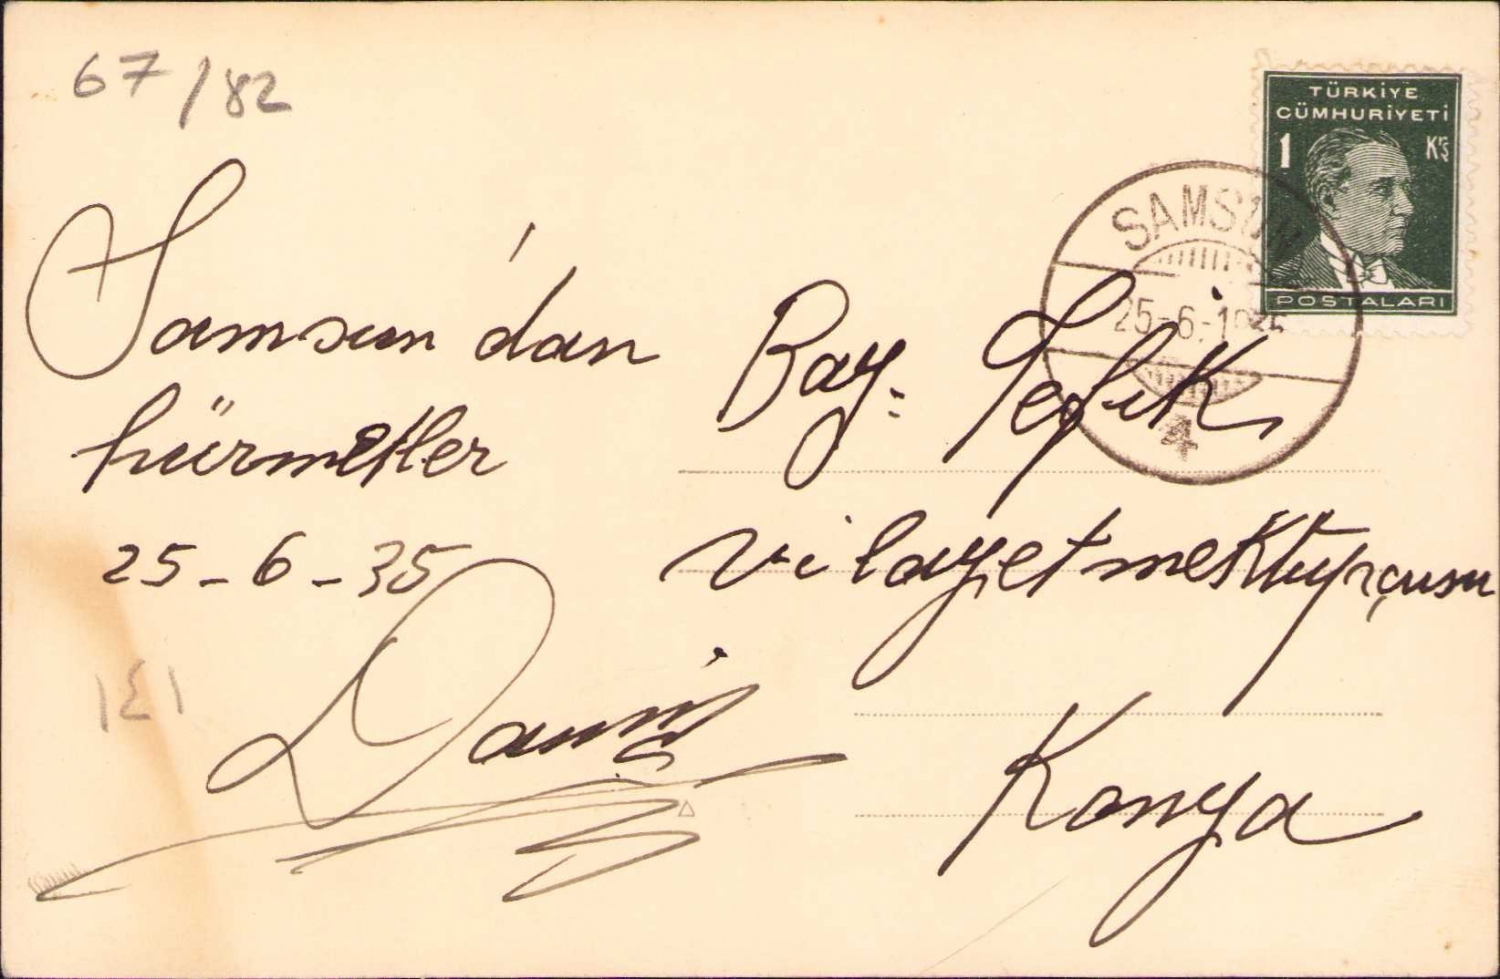 67/82
TÜRKİYE
CÜMHURİYETİ
1 Krş
POSTALARI
SAMSUN
25-6-1935
4
Samsun'dan
hürmetler
25-6-35
Bay: Tefik
vilayet mektupçusu
Konya